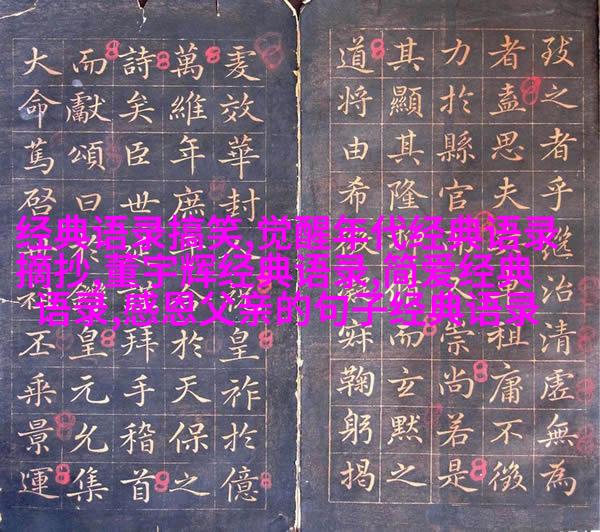 经典语录搞笑,觉醒年代经典语录
摘抄,董宇辉经典语录,简爱经典
语录,感恩父亲的句子经典语录
致之者乎继治清虛無為
者盍思夫祖庸不徵
力於縣官崇尚若是
其顯其隆而玄默之
道將由希寂鞠躬揭
效華封皇祚於億
萬維年庶於天保之
詩矣臣世拜手稽首
而獻頌曰於皇元允集
大命篤啓丕乘景運